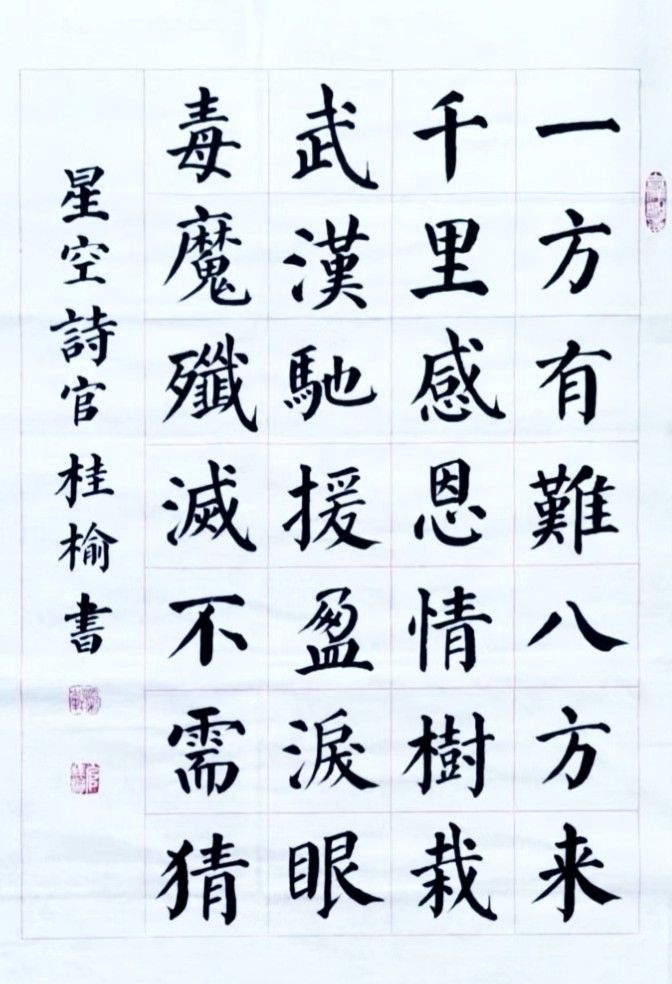 一方有難八方来
千里感恩情樹栽
武漢馳援盈淚眼
毒魔殲滅不需猜
星空詩官桂榆書